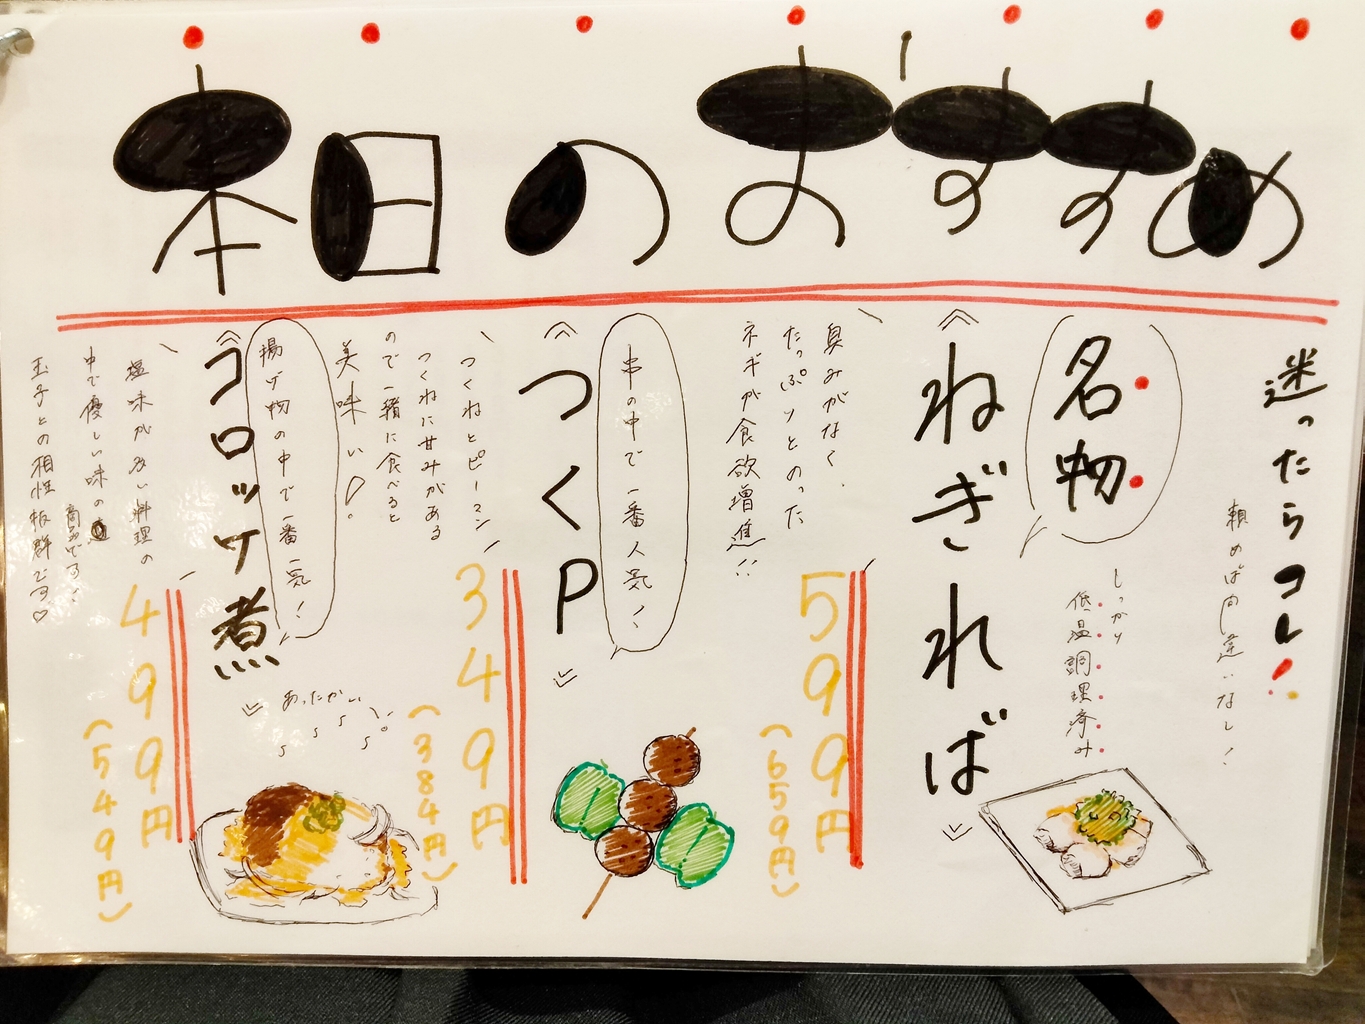 本日のおすすめ
迷ったらコレ!
頼めば間違いなし!
名物
しっかり
低温調理済み
《ねぎればば》
臭みがなく、
たっぷりとのった
ネギが食欲増進!!
599円
(659円)
串の中で一番人気!
《つくP》
つくねとピーマン
つくねに甘みがある
ので一緒に食べると
美味い!
349円
(384円)
揚げ物の中で一番人気!
《コロッケ煮》
あったかい
塩味が強い料理の
中で優しい味の
商品です!
玉子との相性抜群です♡
499円
(549円)